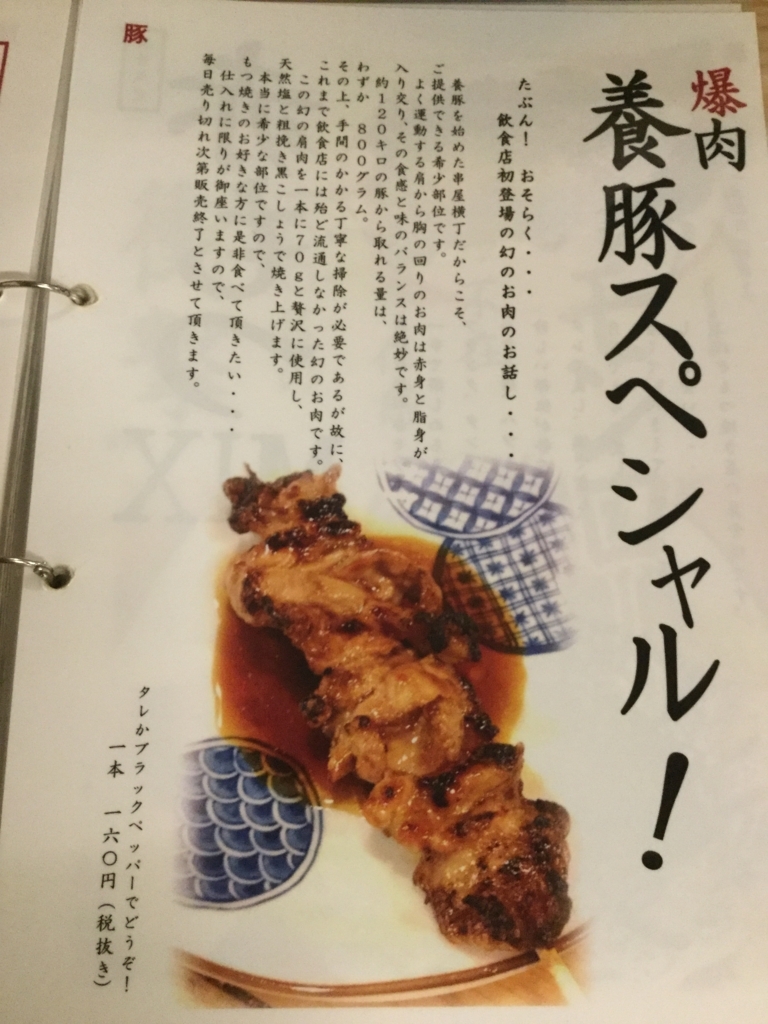 爆肉
養豚スペシャル！
たぶん！　おそらく・・・
飲食店初登場の幻のお肉のお話し・・・
養豚を始めた串屋横丁だからこそ、
ご提供できる希少部位です。
よく運動する肩から胸の回りのお肉は赤身と脂身が
入り交り、その食感と味のバランスは絶妙です。
約１２０キロの豚から取れる量は、
わずか　８００グラム。
その上、手間のかかる丁寧な掃除が必要であるが故に、
これまで飲食店には殆ど流通しなかった幻のお肉です。
この幻の肩肉を一本に７０ｇと贅沢に使用し、
天然塩と粗挽き黒こしょうで焼き上げます。
本当に希少な部位ですので、
もつ焼きのお好きな方に是非食べて頂きたい・・・
仕入れに限りが御座いますので、
毎日売り切れ次第販売終了とさせて頂きます。
豚
タレかブラックペッパーでどうぞ！
一本　一六〇円（税抜き）